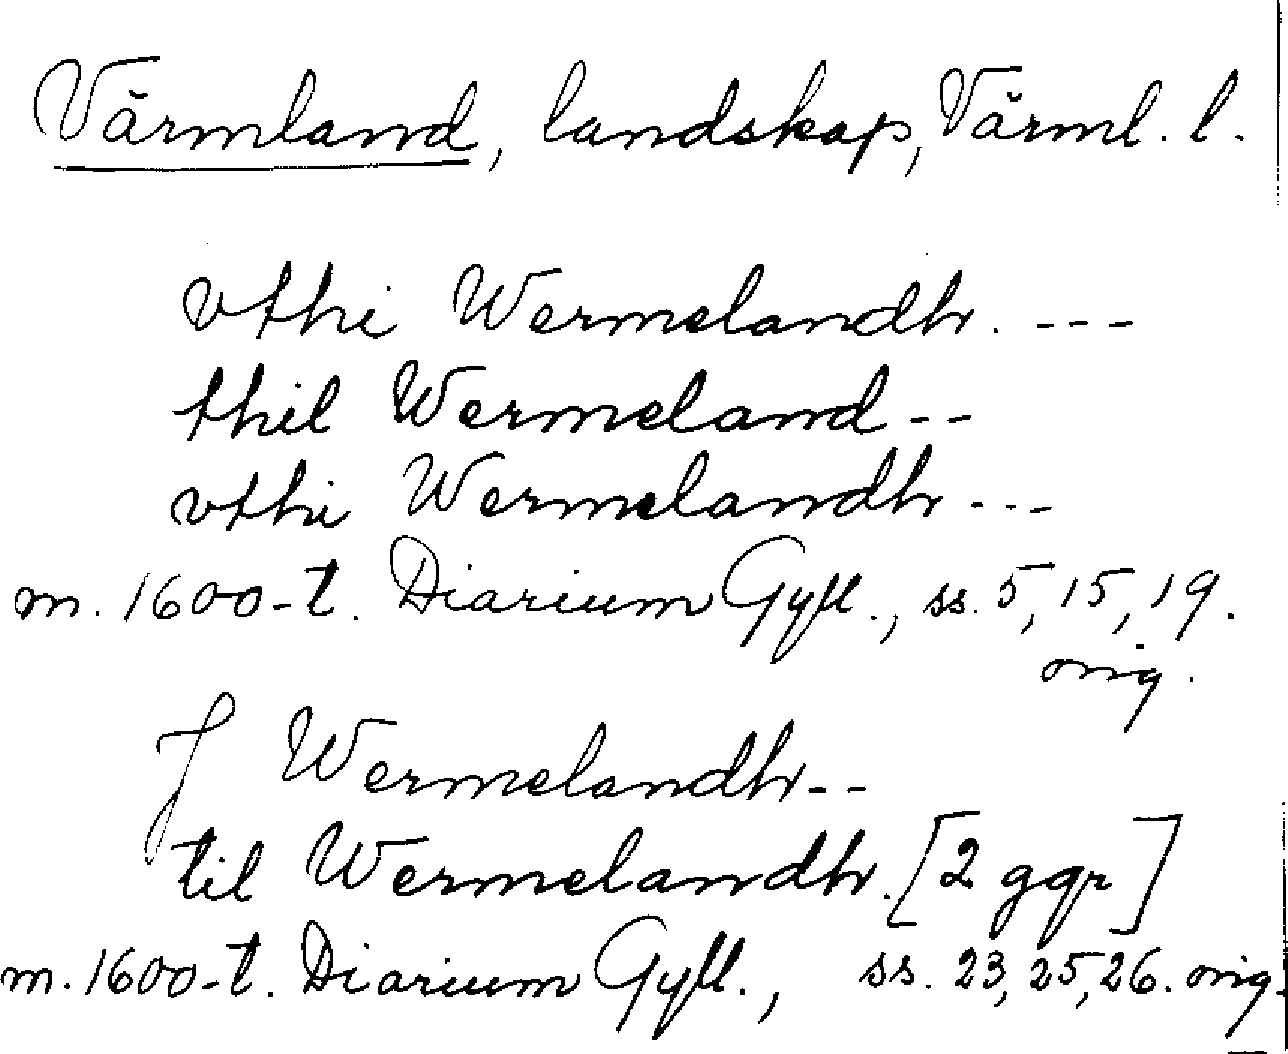 Värmland, landskap, Värml. l.
vthi Wermelandh. ---
thil Wermeland --
vthi Wermelandh ---
m. 1600-t. Diarium Gyll., ss. 5, 15, 19.
orig.
J Wermelandh --
til Wermelandh. [2 ggr]
m. 1600-t. Diarium Gyll., ss. 23, 25, 26. orig.